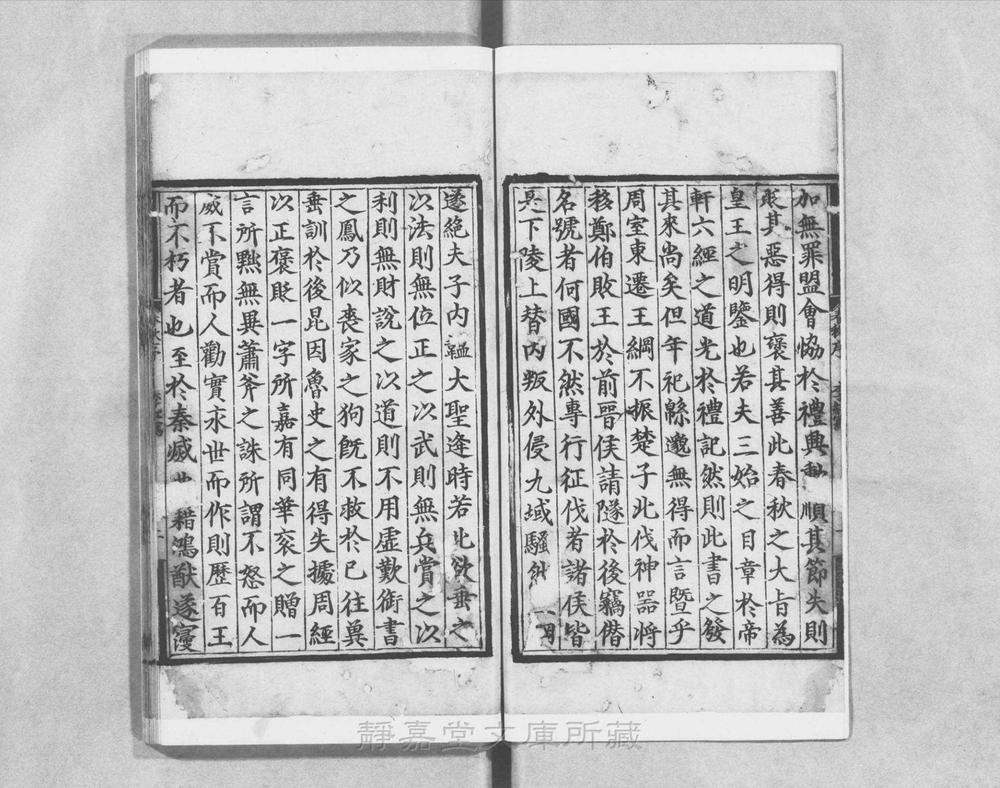 加無罪盟會恊於禮典動順其節失則
貶其惡得則褒其善此春秋之大旨為
皇王之明鑒也若夫三始之目章於帝
軒六經之道光於禮記然則此書之發
其來尚矣但年祀緜邈無得而言暨乎
周室東遷王綱不振楚子北伐神器將
移鄭伯敗王於前晉侯請隧於後竊僣
名號者何國不然專行征伐者諸侯皆
是下陵上替內叛外侵九域騷然
遂絕夫子內韞大聖逢時若此欲垂之
以法則無位正之以武則無兵賞之以
利則無財說之以道則不用虛歎銜書
之鳳乃似喪家之狗旣不救於已往兾
垂訓於後昆因魯史之有得失據周經
以正褒貶一字所嘉有同華衮之贈一
言所黜無異蕭斧之誅所謂不怒而人
威不賞而人勸實永世而作則歷百王
而不朽者也至於秦滅典籍鴻猷遂寖
靜嘉堂文庫所藏